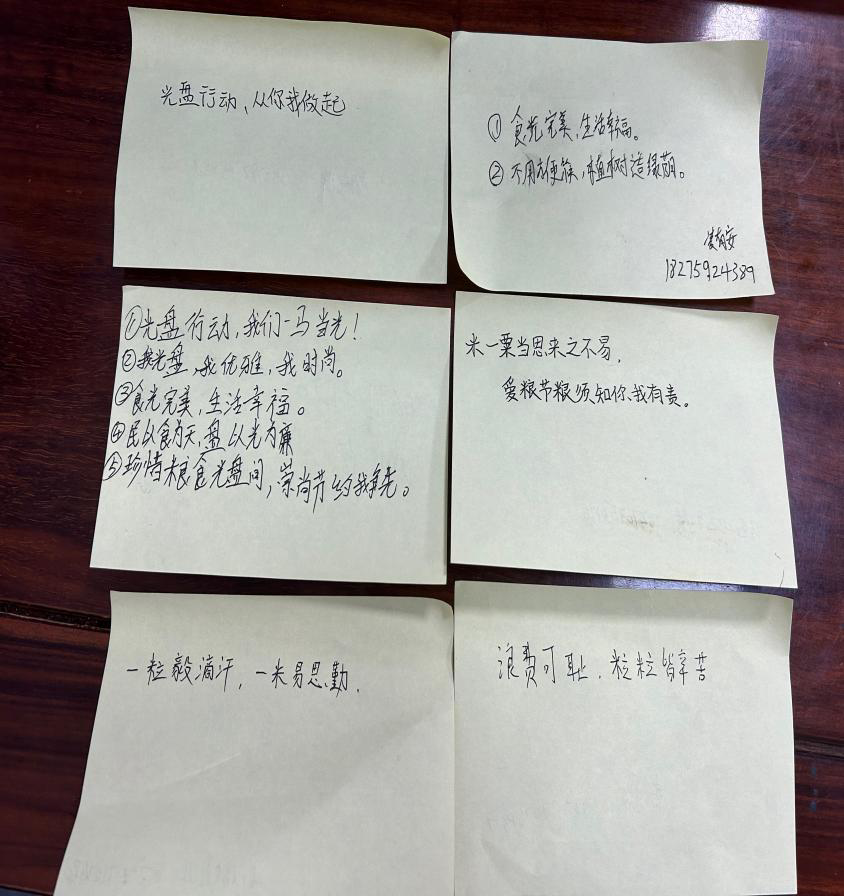 光盘行动、从你我做起
①食光完美,生活幸福。
②不用方便筷,植树造绿荫。
18275924389
①光盘行动,我们一马当光!
②我光盘,我优雅,我时尚。
③食光完美,生活幸福。
④民以食为天,盘以光为廉
⑤珍惜粮食光盘间,崇尚节约我争先。
米一粟当思来之不易,
爱粮节粮须知你、我有责。
一粒毅滴汗,一米易思勤.
浪费可耻.粒粒皆辛苦